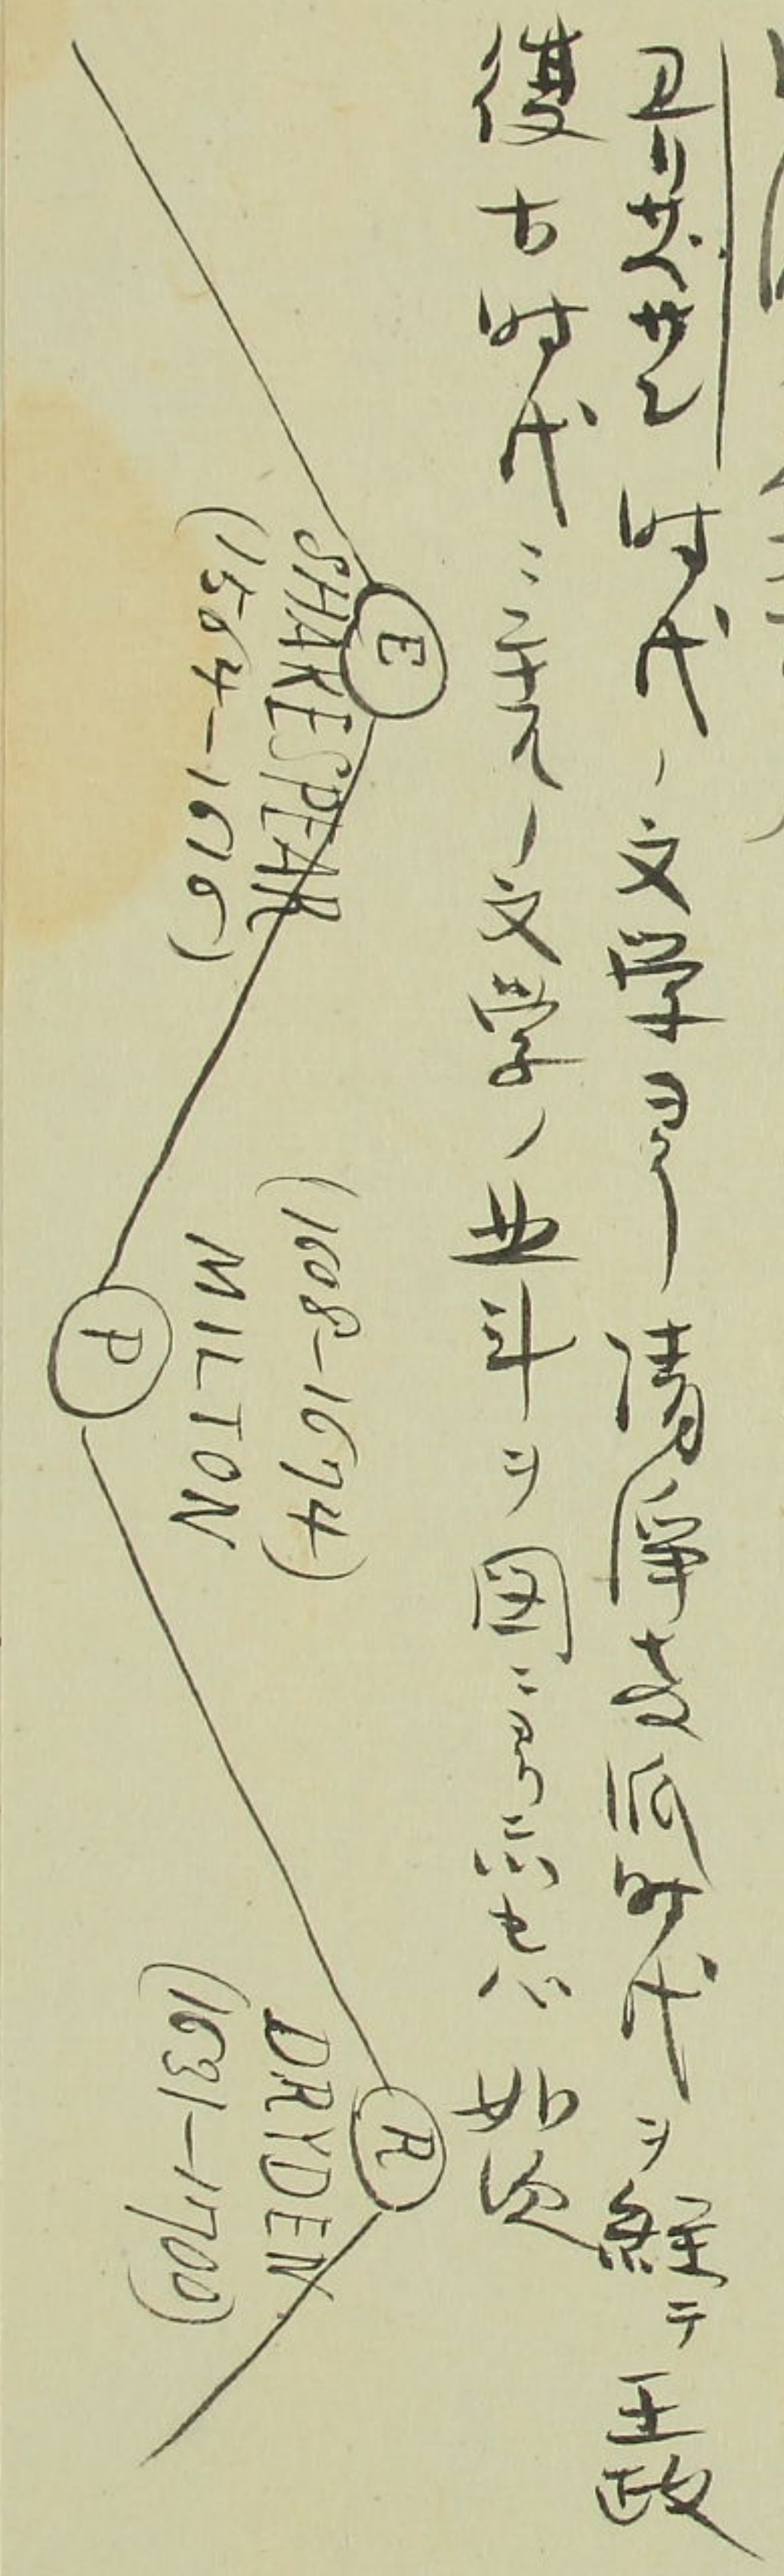 エリザベサン時代ノ文学ヨリ清浄教派時代ヲ経テ王政
復古時代ニ至ル文学ノ並斗ヲ図ニ如次
E
SHAKESPEAR
(1564-1616)
(1608-1674)
MILTON
P
R
DRYDEN
(1631-1700)